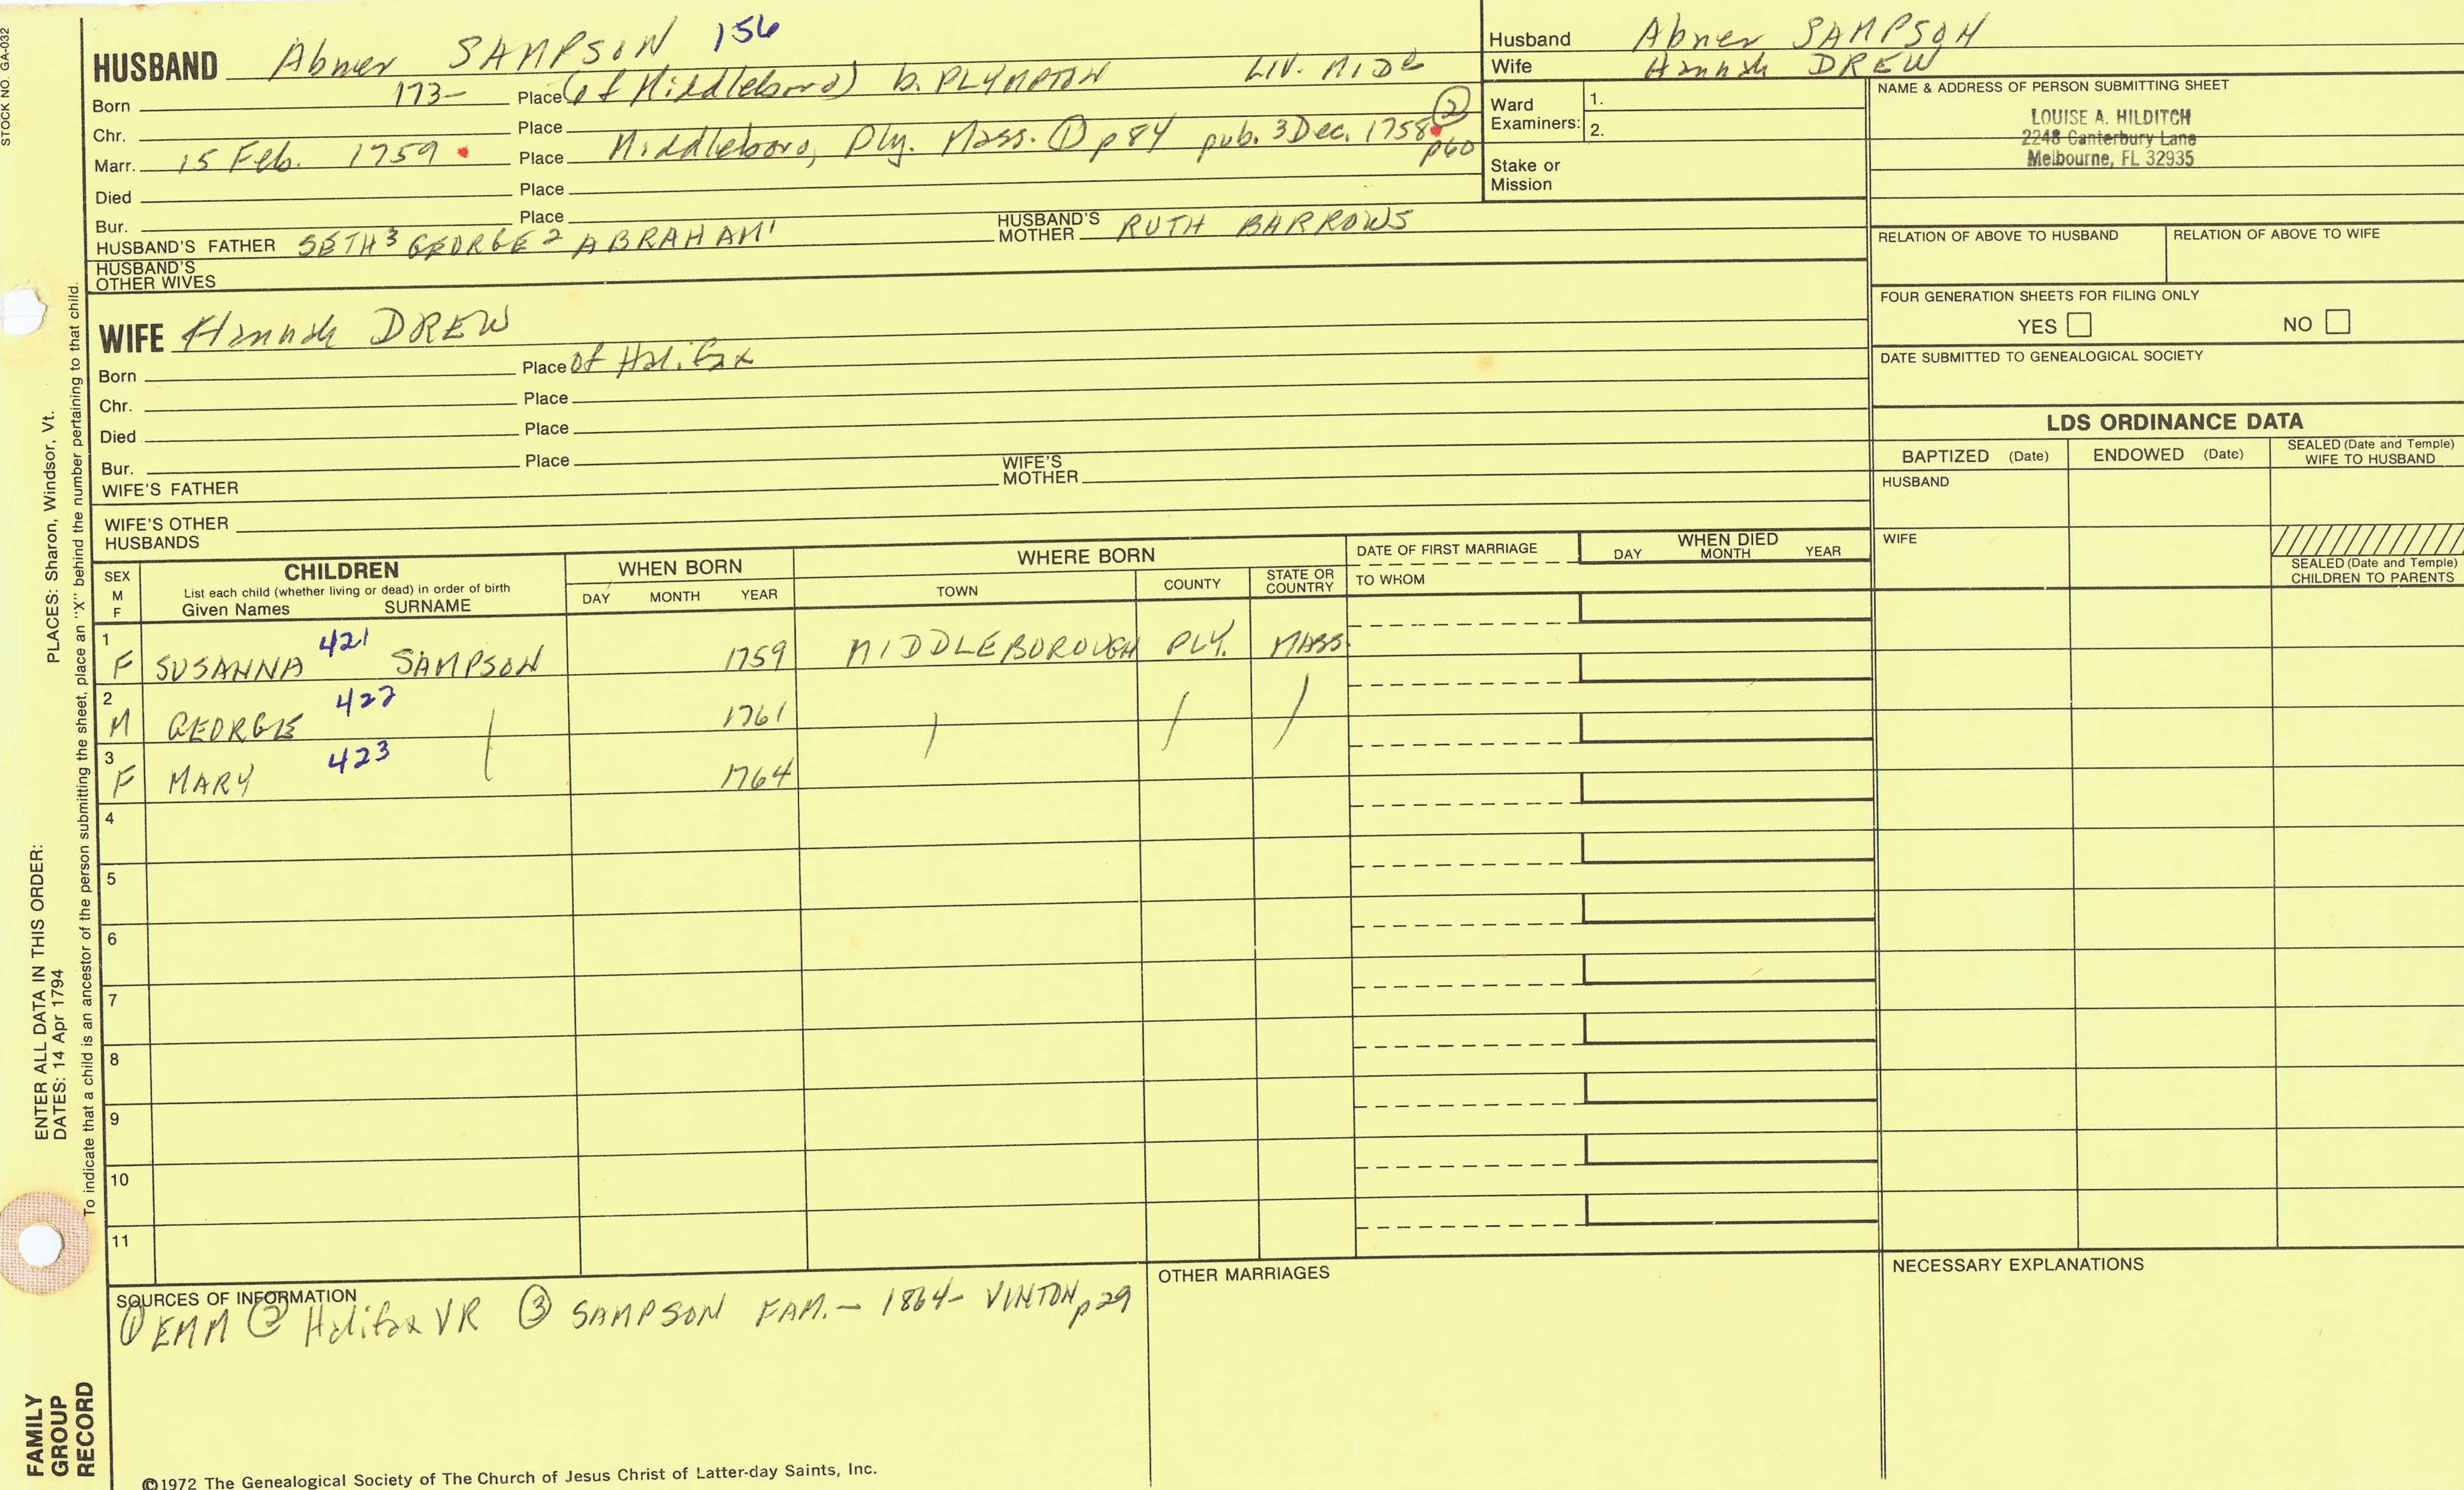 STOCK NO. GA-032
HUSBAND Abner SAMPSON 156
Born 173- Place (of Middleboro) b. PLYMPTON LIV. MIDB
Chr. Place
Marr. 15 Feb. 1759 Place Middleboro, Ply. Mass. ① p84 pub. 3 Dec. 1758 ② p60
Died Place
Bur. Place
HUSBAND'S FATHER SETH³ GEORGE² ABRAHAM¹ HUSBAND'S MOTHER RUTH BARROWS
HUSBAND'S OTHER WIVES
WIFE Hannah DREW
Born Place of Halifax
Chr. Place
Died Place
Bur. Place
WIFE'S FATHER WIFE'S MOTHER
WIFE'S OTHER HUSBANDS
Husband Abner SAMPSON
Wife Hannah DREW
Ward Examiners: 1.
2.
Stake or Mission
NAME & ADDRESS OF PERSON SUBMITTING SHEET
LOUISE A. HILDITCH
2248 Canterbury Lane
Melbourne, FL 32935
RELATION OF ABOVE TO HUSBAND RELATION OF ABOVE TO WIFE
FOUR GENERATION SHEETS FOR FILING ONLY
YES NO
DATE SUBMITTED TO GENEALOGICAL SOCIETY
LDS ORDINANCE DATA
BAPTIZED (Date) ENDOWED (Date) SEALED (Date and Temple) WIFE TO HUSBAND
HUSBAND
WIFE
SEALED (Date and Temple) CHILDREN TO PARENTS
SEX M F
CHILDREN
List each child (whether living or dead) in order of birth
Given Names SURNAME
WHEN BORN
DAY MONTH YEAR
WHERE BORN
TOWN COUNTY STATE OR COUNTRY
DATE OF FIRST MARRIAGE
TO WHOM
WHEN DIED
DAY MONTH YEAR
1 F SUSANNA 421 SAMPSON 1759 MIDDLEBOROUGH PLY. MASS.
2 M GEORGE 422 1761
3 F MARY 423 1764
4
5
6
7
8
9
10
11
SOURCES OF INFORMATION
① EMM ② Halifax VR ③ SAMPSON FAM. - 1864 - VINTON p29
OTHER MARRIAGES
NECESSARY EXPLANATIONS
©1972 The Genealogical Society of The Church of Jesus Christ of Latter-day Saints, Inc.
FAMILY GROUP RECORD
ENTER ALL DATA IN THIS ORDER:
DATES: 14 Apr 1794
PLACES: Sharon, Windsor, Vt.
To indicate that a child is an ancestor of the person submitting the sheet, place an "X" behind the number pertaining to that child.